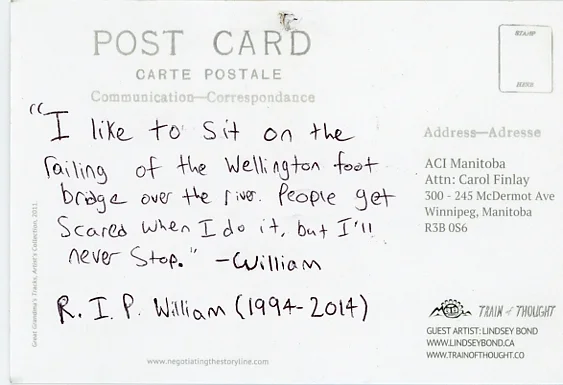 POST CARD
CARTE POSTALE
Communication—Correspondance
"I like to sit on the
railing of the Wellington foot
bridge over the river. People get
scared when I do it, but I'll
never stop." -William
R.I.P. William (1994-2014)
STAMP
Address—Adresse
ACI Manitoba
Attn: Carol Finlay
300 - 245 McDermot Ave
Winnipeg, Manitoba
R3B 0S6
TRAIN of THOUGHT
GUEST ARTIST: LINDSEY BOND
WWW.LINDSEYBOND.CA
WWW.TRAINOFTHOUGHT.CO
www.negotiatingthestoryline.com
Great Grandma's Tracks, Artist's Collection, 2011